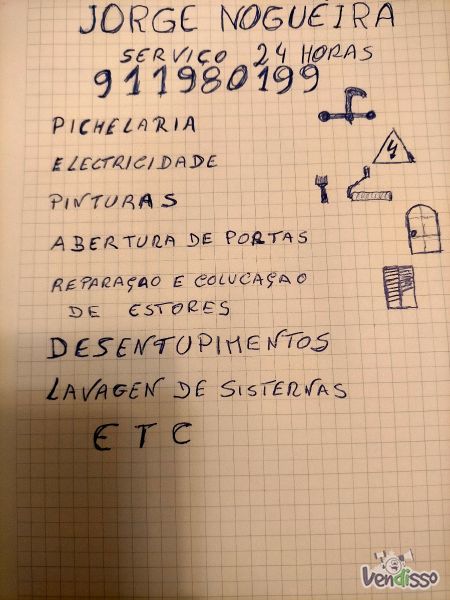 JORGE NOGUEIRA
SERVIÇO 24 HORAS
911980199
PICHELARIA
ELECTRICIDADE
PINTURAS
ABERTURA DE PORTAS
REPARAÇAO E COLUCAÇAO
DE ESTORES
DESENTUPIMENTOS
LAVAGEN DE SISTERNAS
ETC
Vendisso